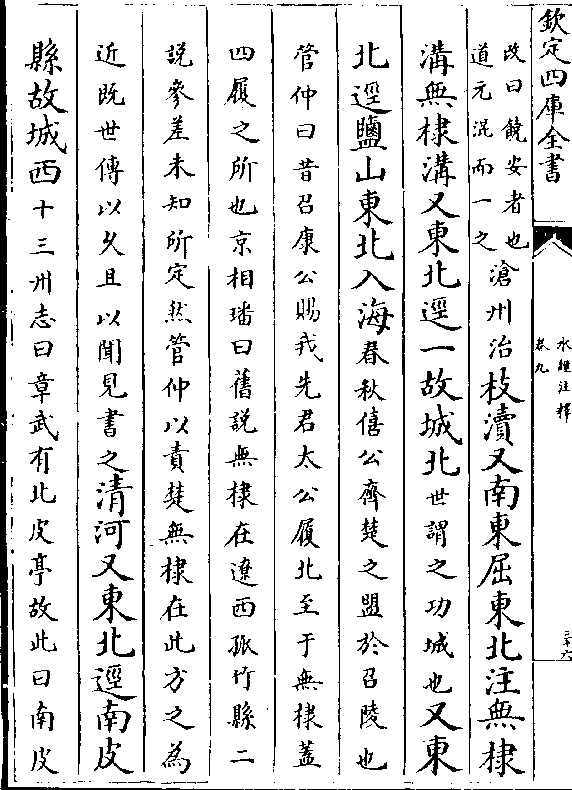 欽定四庫全書
水經注釋
卷九
三十六
故曰饒安者也
道元混而一之
滄州治枝瀆又南東屈東北注無棣
溝無棣溝又東北逕一故城北世謂之功城也又東
北逕鹽山東北入海春秋僖公齊楚之盟於召陵也
管仲曰昔召康公賜我先君太公履北至于無棣蓋
四履之所也京相璠曰舊說無棣在遼西孤竹縣二
說參差未知所定然管仲以責楚無棣在此方之為
近既世傳以久且以聞見書之清河又東北逕南皮
縣故城西十三州志曰章武有北皮亭故此曰南皮